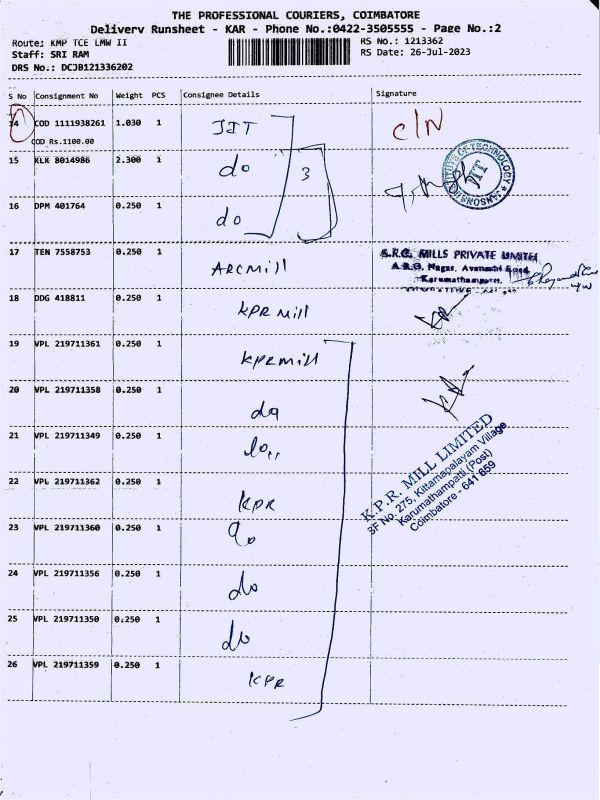 THE PROFESSIONAL COURIERS, COIMBATORE
Delivery Runsheet - KAR - Phone No.:0422-3505555 - Page No.:2
Route: KMP TCE LMW II
RS No.: 1213362
Staff: SRI RAM
RS Date: 26-Jul-2023
DRS No.: DCJB121336202
S No Consignment No Weight PCS Consignee Details Signature
14 COD 1111938261 1.030 1 JIT C/N
COD Rs.1100.00
15 KLK 8014986 2.300 1 do 3
INSTITUTE OF TECHNOLOGY
JIT
16 DPM 401764 0.250 1 do
17 TEN 7558753 0.250 1 ARC Mill
MILLS PRIVATE LIMITED
Nagar, Avanashi Road,
Karumathampatti,
18 DDG 418811 0.250 1 KPR Mill
19 VPL 219711361 0.250 1 KPR Mill
20 VPL 219711358 0.250 1 do
21 VPL 219711349 0.250 1 do,,
K.P.R. MILL LIMITED
SF No. 275, Kittampalayam Village
Karumathampatti (Post)
Coimbatore - 641 659
22 VPL 219711362 0.250 1 KPR
23 VPL 219711360 0.250 1 do
24 VPL 219711356 0.250 1 do
25 VPL 219711350 0.250 1 do
26 VPL 219711359 0.250 1 KPR